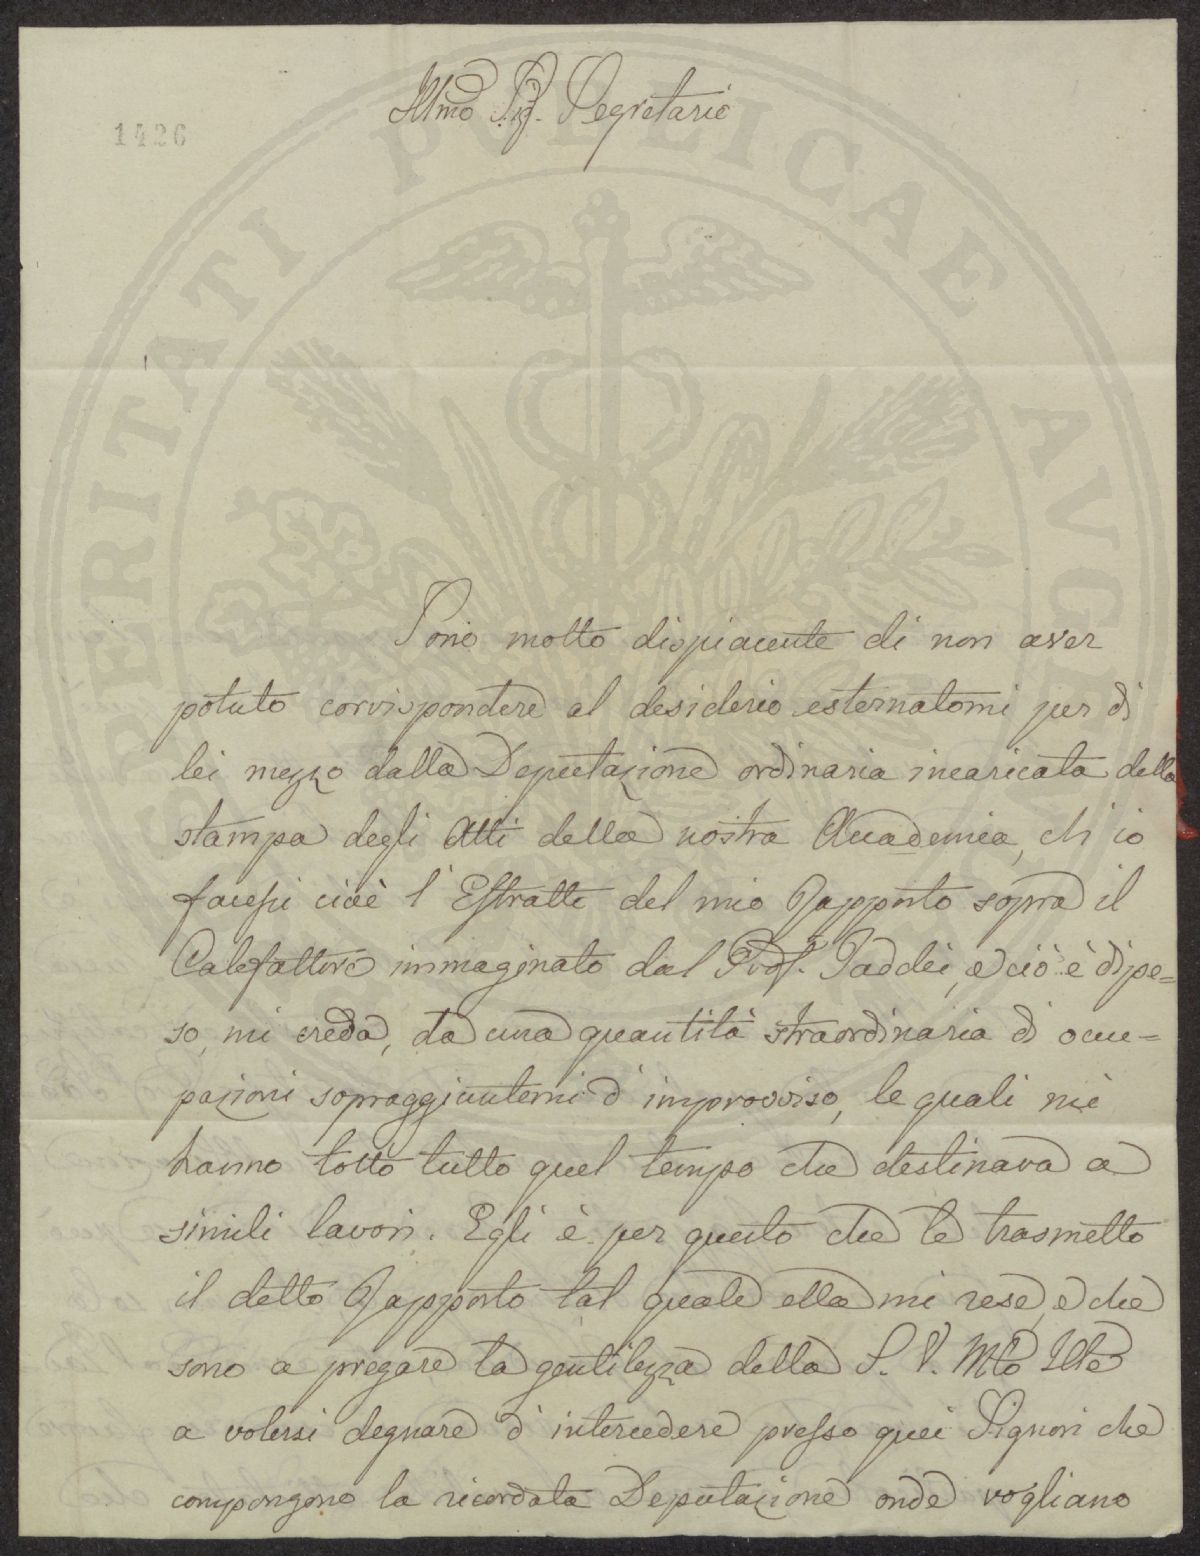 1426
Illmo Sig. Segretario
Sono molto dispiacente di non aver
potuto corrispondere al desiderio esternatomi per di
lei mezzo dalla Deputazione ordinaria incaricata della
stampa degli Atti della nostra Accademia, ch'io
facessi cioè l'Estratto del mio Rapporto sopra il
Calefattore immaginato dal Prof. Taddei, e ciò è dipe=
so, mi creda, da una quantità straordinaria di occu=
pazioni sopraggiuntemi d'improvviso, le quali mi
hanno tolto tutto quel tempo che destinava a
simili lavori. Egli è per questo che le trasmetto
il detto Rapporto tal quale ella mi rese, e che
sono a pregare la gentilezza della S. V. Mto Ille
a volersi degnare d'intercedere presso quei Signori che
compongono la ricordata Deputazione onde vogliano
PROSPERITATI PUBLICAE AVGE